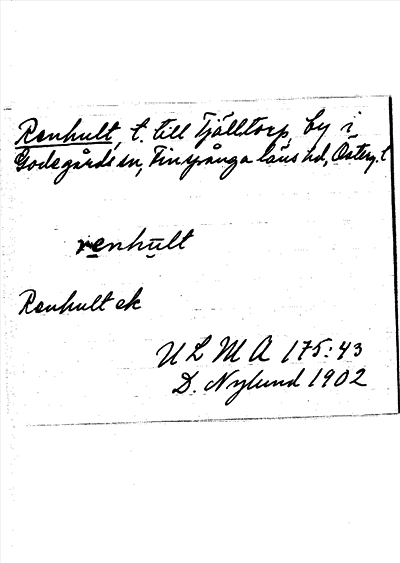 Renhult, t. till Tjälltorp, by i
Godegårds sn, Finspånga läns hd, Österg. l
renhult
Renhult ek
U L M A 175:43
D. Nylund 1902